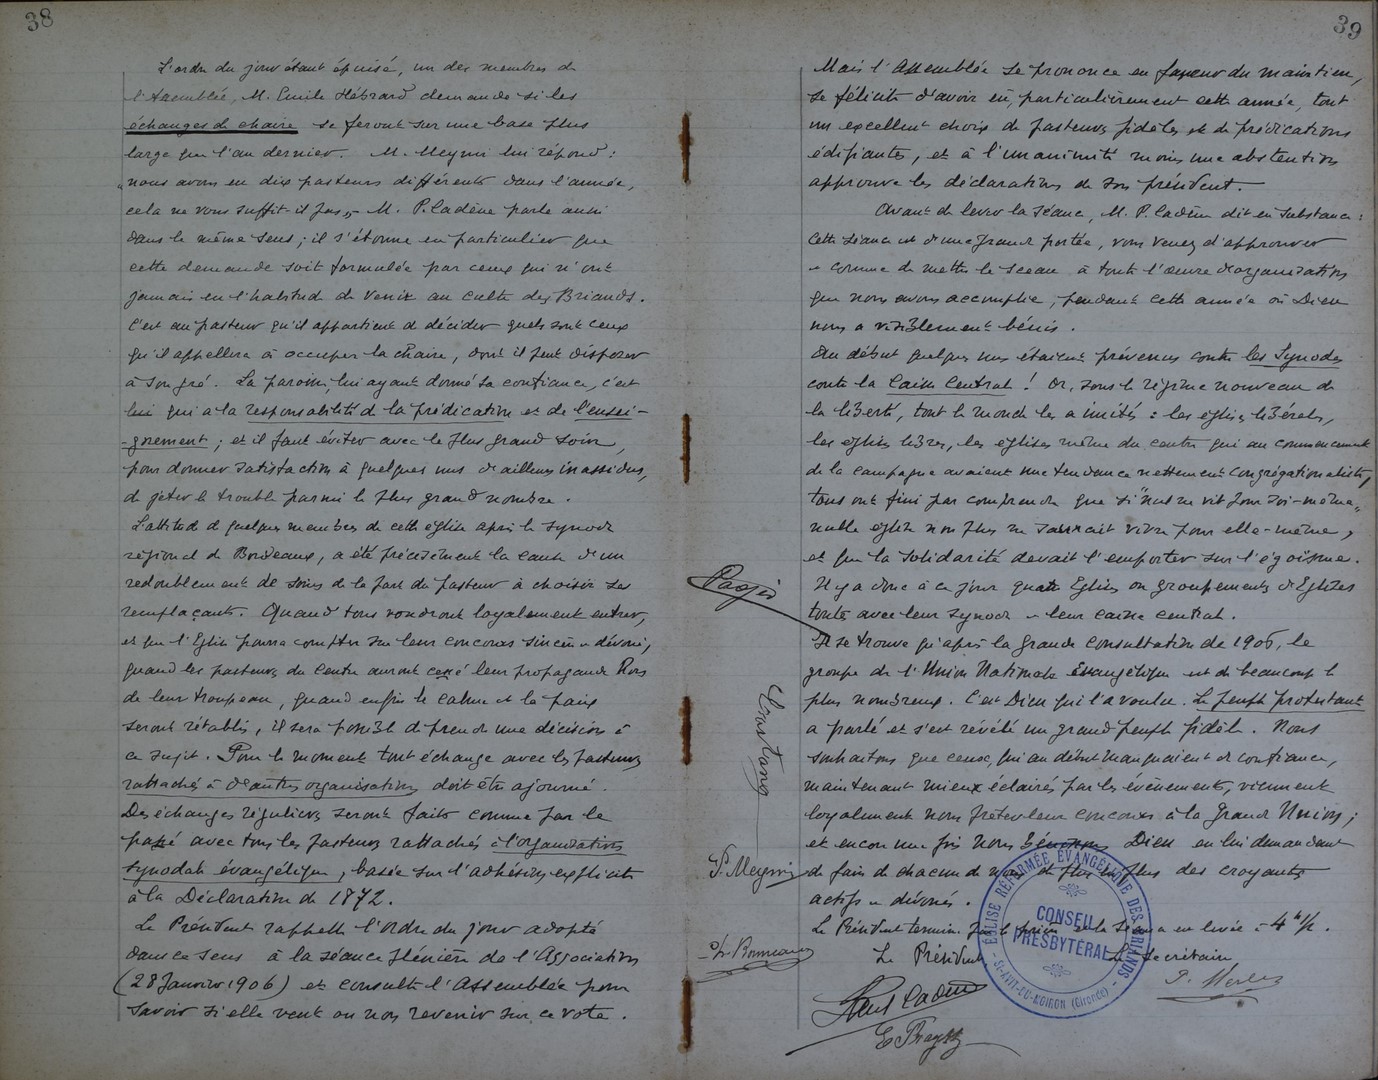 38
L'ordre du jour étant épuisé, un des membres de
l'Assemblée, M. Emile Hébrard demande si les
échanges de chaire se feront sur une base plus
large que l'an dernier. M. Meymi lui répond :
"nous avons eu dix pasteurs différents dans l'année,
cela ne vous suffit-il pas,, M. P. Cadène parle aussi
dans le même sens ; il s'étonne en particulier que
cette demande soit formulée par ceux qui n'ont
jamais eu l'habitude de venir au culte des Briands.
C'est au pasteur qu'il appartient de décider quels sont ceux
qu'il appellera à occuper la chaire, dont il peut disposer
à son gré. La paroisse, lui ayant donné sa confiance, c'est
lui qui a la responsabilité de la prédication et de l'ensei-
-gnement ; et il faut éviter avec le plus grand soin,
pour donner satisfaction à quelques uns d'ailleurs inassidus,
de jeter le trouble parmi le plus grand nombre.
L'attitude de quelques membres de cette église après le synode
régional de Bordeaux, a été précisément la cause d'un
redoublement de soins de la part du pasteur à choisir ses
remplaçants. Quand tous voudront loyalement entrer,
et que l'Eglise pourra compter sur leur concours sincère et dévoué,
quand les pasteurs du Centre auront cessé leur propagande hors
de leur troupeau, quand enfin le calme et la paix
seront rétablis, il sera possible de prendre une décision à
ce sujet. Pour le moment tout échange avec les pasteurs
rattachés à d'autres organisations doit être ajourné.
Des échanges réguliers seront faits comme par le
passé avec tous les pasteurs rattachés à l'organisation
synodale évangélique, basée sur l'adhésion explicite
à la Déclaration de 1872.
Le Président rappelle l'ordre du jour adopté
dans ce sens à la séance plénière de l'Association
(28 Janvier 1906) et consulte l'Assemblée pour
savoir si elle veut ou non revenir sur ce vote.
39
Mais l'Assemblée se prononce en faveur du maintien,
se félicite d'avoir eu, particulièrement cette année, tout
un excellent choix de pasteurs fidèles et de prédications
édifiantes, et à l'unanimité moins une abstention
approuve les déclarations de son président.
Avant de lever la séance, M. P. Cadène dit en substance :
Cette séance est d'une grande portée, vous venez d'approuver
et comme de mettre le sceau à toute l'œuvre d'organisation
que nous avons accomplie, pendant cette année où Dieu
nous a visiblement bénis.
Au début quelques uns étaient prévenus contre les Synodes
contre la Caisse Centrale ! Or, sous le régime nouveau de
la liberté, tout le monde les a imités : les églises libérales,
les églises libres, les églises même du centre qui au commencement
de la campagne avaient une tendance nettement congrégationaliste,
tous ont fini par comprendre que si "nul ne vit pour soi-même,,
nulle église non plus ne saurait vivre pour elle-même,
et que la solidarité devait l'emporter sur l'égoïsme.
Il y a donc à ce jour quatre Eglises ou groupements d'Eglises
toutes avec leur synode et leur caisse centrale.
Il se trouve qu'après la grande consultation de 1906, le
groupe de l'Union Nationale Evangélique est de beaucoup le
plus nombreux. C'est Dieu qui l'a voulu. Le peuple protestant
a parlé et s'est révélé un grand peuple fidèle. Nous
souhaitons que ceux, qui au début manquaient de confiance,
maintenant mieux éclairés par les événements, viennent
loyalement nous prêter leur concours à la Grande Union ;
et encore une fois nous bénissons Dieu en lui demandant
de faire de chacun de nous de plus en plus des croyants
actifs et dévoués.
Le Président termine par la prière et la séance est levée à 4 h 1/2.
Le Président
Le Secrétaire
Paul Cadène
P. Meymi
ÉGLISE RÉFORMÉE ÉVANGÉLIQUE DES BRIANDS
CONSEIL PRESBYTÉRAL
St-AVIT-DU-MOIRON (Gironde)